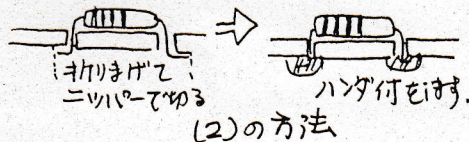 オリまげて
ニッパーで切る
ハンダ付をします.
(2)の方法